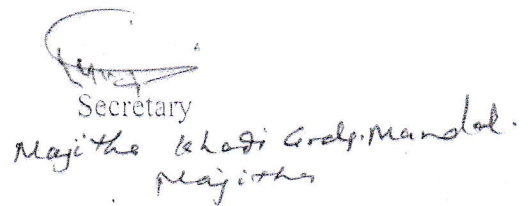 Secretary
Majitha Khadi Grdg. Mandal.
Majitha